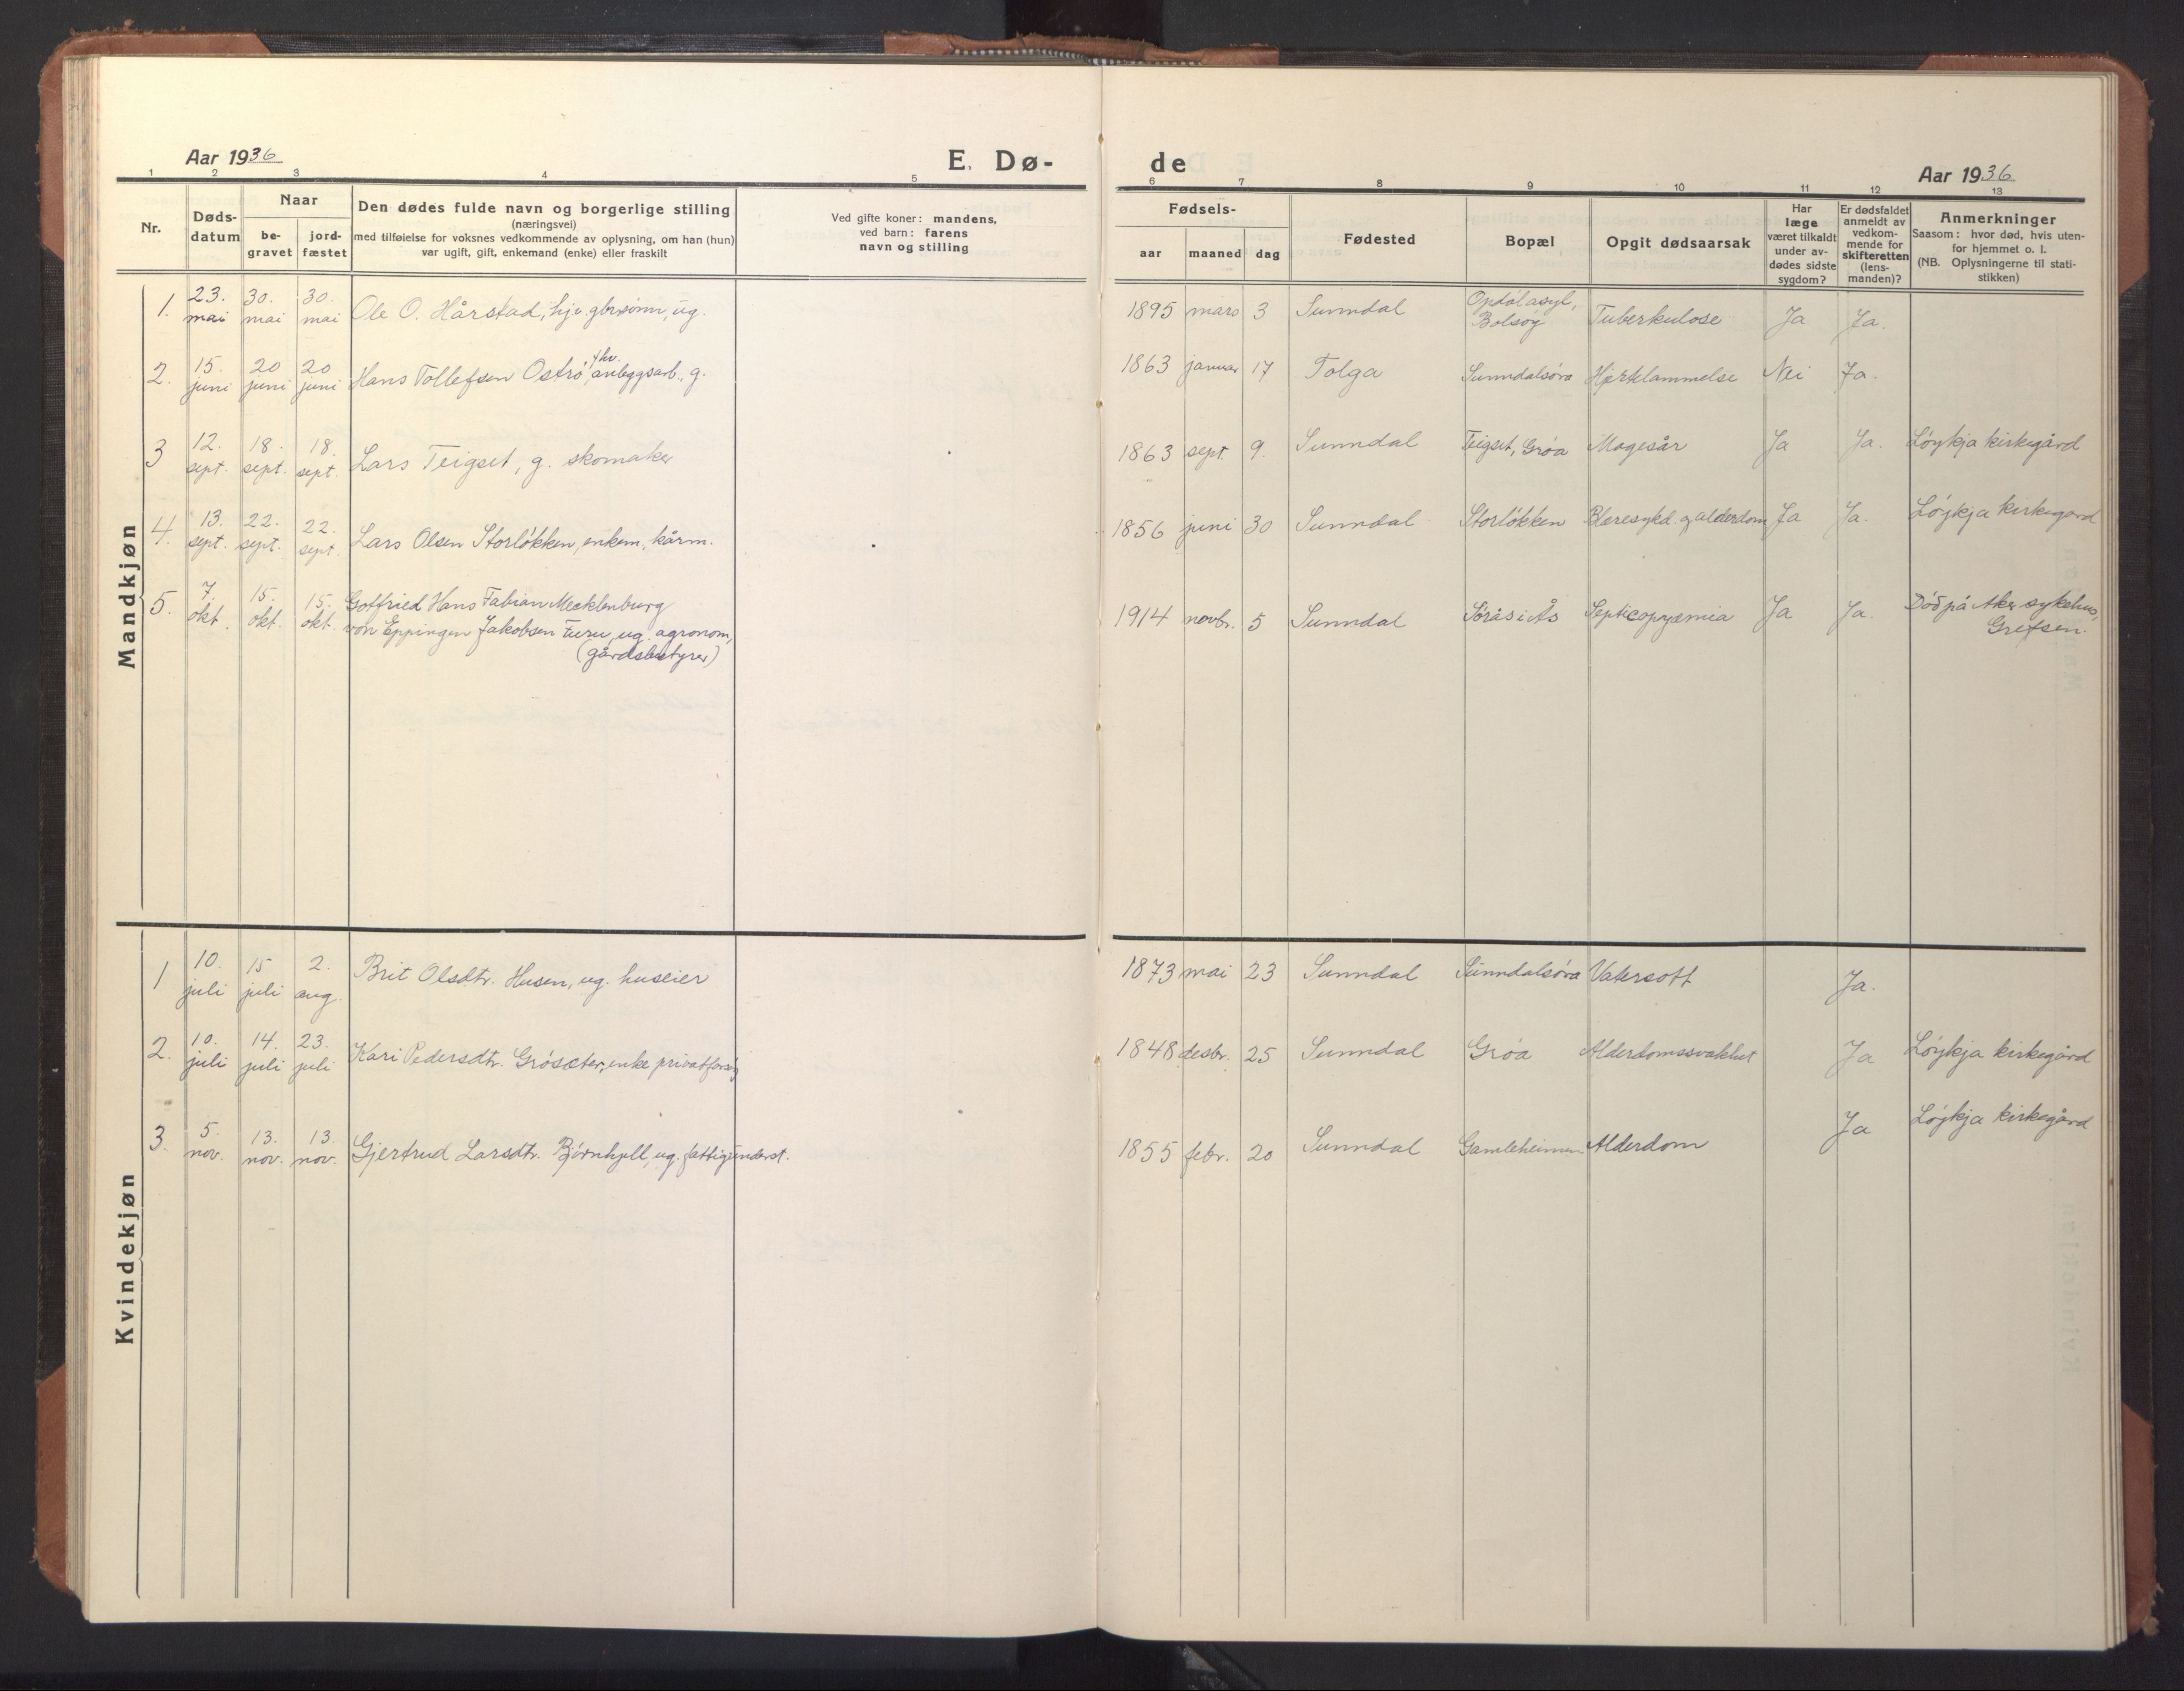 Aar 1936
E. Dø-
1 2 3 4 5
Nr.
Døds-
datum
Naar
be-
gravet
jord-
fæstet
Den dødes fulde navn og borgerlige stilling
(næringsvei)
med tilføielse for voksnes vedkommende av oplysning, om han (hun)
var ugift, gift, enkemand (enke) eller fraskilt
Ved gifte koner: mandens,
ved barn: farens
navn og stilling
Mandkjøn
1. 23. mai 30. mai 30. mai Ole O. Hårstad, hjv. gbrsønn, ug.
2. 15. juni 20 juni 20 juni Hans Tollefsen Østrø, fhv. anleggsarb., g.
3 12. sept. 18. sept. 18. sept. Lars Teigset, g. skomaker
4. 13. sept. 22. sept. 22. sept. Lars Olsen Storløkken, enkem., kårm.
5. 7. okt. 15. okt. 15. okt. Gotfried Hans Fabian Mecklenburg
von Eppingen Jakobsen Furu, ug. agronom,
(gårdsbestyrer)
Kvindekjøn
1 10. juli 15 juli 2. aug. Brit Olsdtr. Husen, ug. huseier
2. 10. juli 14. juli 23. juli Kari Pedersdtr. Grøsæter, enke privatforsg
3. 5. nov. 13. nov. 13. nov. Gjertrud Larsdtr. Bjørnhjell, ug. fattigunderst.
de
Aar 1936
6 7 8 9 10 11 12 13
Fødsels-
aar
maaned
dag
Fødested
Bopæl
Opgit dødsaarsak
Har
læge
været tilkaldt
under av-
dødes sidste
sygdom?
Er dødsfaldet
anmeldt av
vedkom-
mende for
skifteretten
(lens-
manden)?
Anmerkninger
Saasom: hvor død, hvis uten-
for hjemmet o. l.
(NB. Oplysningerne til stati-
stikken)
1895 mars 3 Sunndal Opdølasyl, Bolsøy Tuberkulose Ja Ja.
1863 januar 17 Tolga Sunndalsøra Hjerklammelse Nei Ja.
1863 sept. 9. Sunndal Teigset, Grøa Magesår Ja Ja. Løykja kirkegård
1856 juni 30 Sunndal Storløkken Blæresykd. og alderdom Ja Ja. Løykja kirkegård
1914 novbr. 5 Sunndal Sørås i Ås Septicopyæmia Ja Ja. Død på Aker sykehus,
Grefsen.
1873 mai 23 Sunndal Sunndalsøra Vatersott Ja.
1848 desbr. 25 Sunndal Grøa Alderdomssvakhet Ja Løykja kirkegård
1855 febr. 20 Sunndal Gamleheimen Alderdom Ja Løykja kirkegård